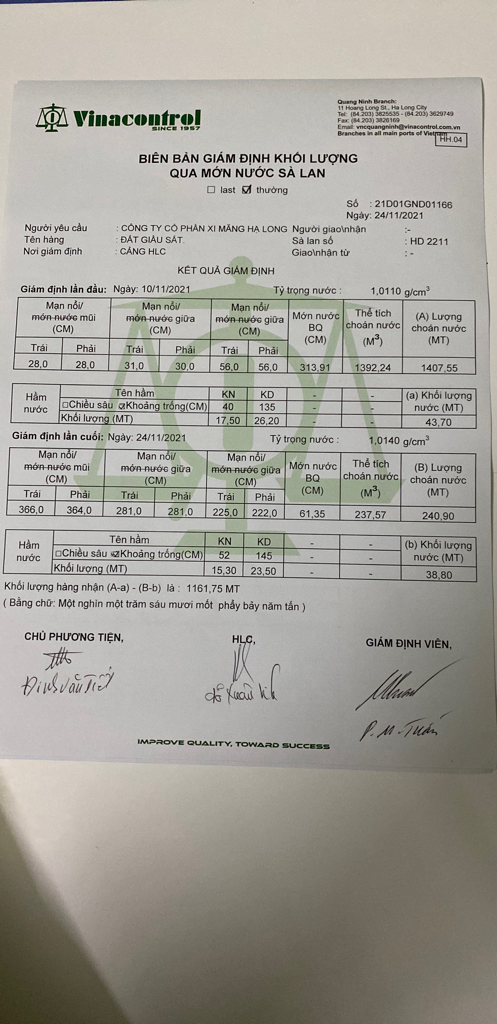 Vinacontrol
SINCE 1957
Quang Ninh Branch:
11 Hoang Long St., Ha Long City
Tel: (84.203) 3825535 - (84.203) 3629749
Fax: (84.203) 3826169
Email: vncquangninh@vinacontrol.com.vn
Branches in all main ports of Vietnam
HH.04
BIÊN BẢN GIÁM ĐỊNH KHỐI LƯỢNG
QUA MỚN NƯỚC SÀ LAN
☐ last ☑ thường
Số : 21D01GND01166
Ngày: 24/11/2021
Người yêu cầu : CÔNG TY CỔ PHẦN XI MĂNG HẠ LONG Người giao\nhận :-
Tên hàng : ĐẤT GIÀU SẮT. Sà lan số : HD 2211
Nơi giám định : CẢNG HLC Giao\nhận từ : -
KẾT QUẢ GIÁM ĐỊNH
Giám định lần đầu: Ngày: 10/11/2021 Tỷ trọng nước : 1,0110 g/cm³
Mạn nổi/ mớn nước mũi (CM) Mạn nổi/ mớn nước giữa (CM) Mạn nổi/ mớn nước giữa (CM) Mớn nước BQ (CM) Thể tích choán nước (M³) (A) Lượng choán nước (MT)
Trái Phải Trái Phải Trái Phải
28,0 28,0 31,0 30,0 56,0 56,0 313,91 1392,24 1407,55
Hầm nước Tên hầm KN KD - - (a) Khối lượng nước (MT)
☐Chiều sâu ☑Khoảng trống(CM) 40 135 - -
Khối lượng (MT) 17,50 26,20 - - 43,70
Giám định lần cuối: Ngày: 24/11/2021 Tỷ trọng nước : 1,0140 g/cm³
Mạn nổi/ mớn nước mũi (CM) Mạn nổi/ mớn nước giữa (CM) Mạn nổi/ mớn nước giữa (CM) Mớn nước BQ (CM) Thể tích choán nước (M³) (B) Lượng choán nước (MT)
Trái Phải Trái Phải Trái Phải
366,0 364,0 281,0 281,0 225,0 222,0 61,35 237,57 240,90
Hầm nước Tên hầm KN KD - - (b) Khối lượng nước (MT)
☐Chiều sâu ☑Khoảng trống(CM) 52 145 - -
Khối lượng (MT) 15,30 23,50 - - 38,80
Khối lượng hàng nhận (A-a) - (B-b) là : 1161,75 MT
( Bằng chữ: Một nghìn một trăm sáu mươi mốt phẩy bảy năm tấn )
CHỦ PHƯƠNG TIỆN, HLC, GIÁM ĐỊNH VIÊN,
Đinh Văn Tiết
P. M. Tuấn
IMPROVE QUALITY, TOWARD SUCCESS